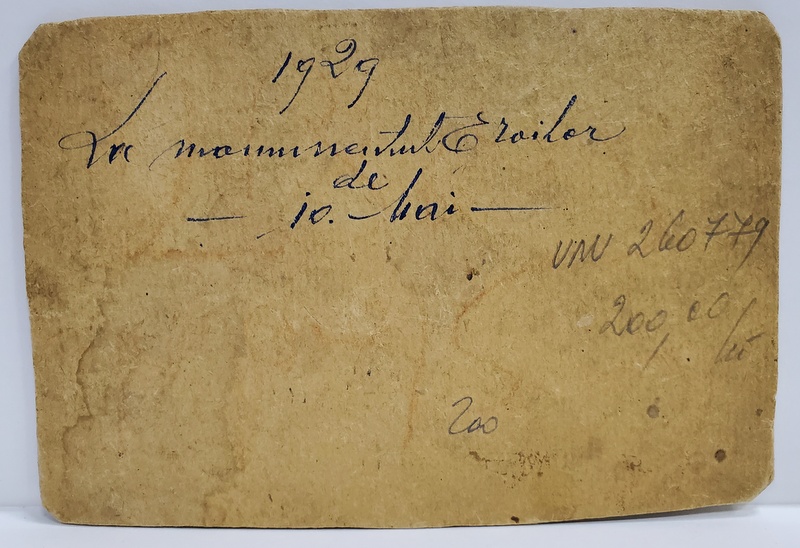 1929
La monumentul Eroilor
de
— 10. Mai —
VNV 260779
200,00 lei
200